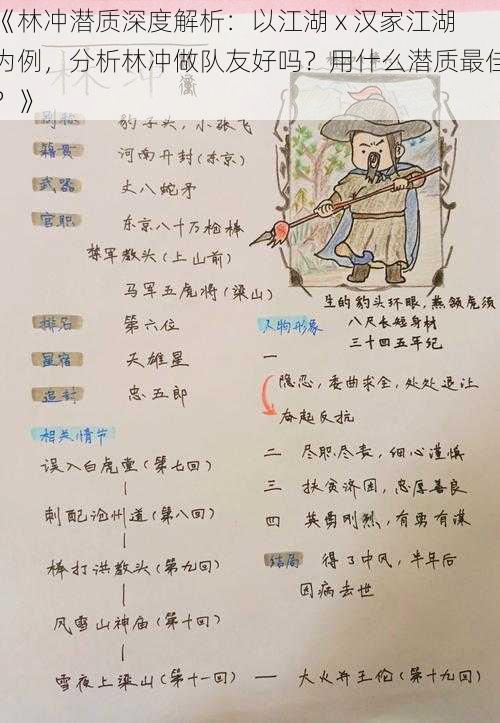 《林冲潜质深度解析：以江湖 x 汉家江湖
为例，分析林冲做队友好吗？用什么潜质最佳
？》
林冲
别称 豹子头，小张飞
籍贯 河南开封（东京）
武器 丈八蛇矛
官职 东京八十万枪棒
禁军教头（上山前）
马军五虎将（梁山）
排名 第六位
星宿 天雄星
追封 忠五郎
相关情节
误入白虎堂（第七回）
刺配沧州道（第八回）
棒打洪教头（第九回）
风雪山神庙（第十回）
雪夜上梁山（第十一回） — 大火并王伦（第十九回）
生的豹头环眼，燕颔虎须
八尺长短身材
三十四五年纪
人物形象
一 隐忍，委曲求全，处处退让
奋起反抗
二 尽职尽责，细心谨慎
三 扶贫济困，忠厚善良
四 英勇刚烈，有勇有谋
结局 得了中风，半年后
因病去世